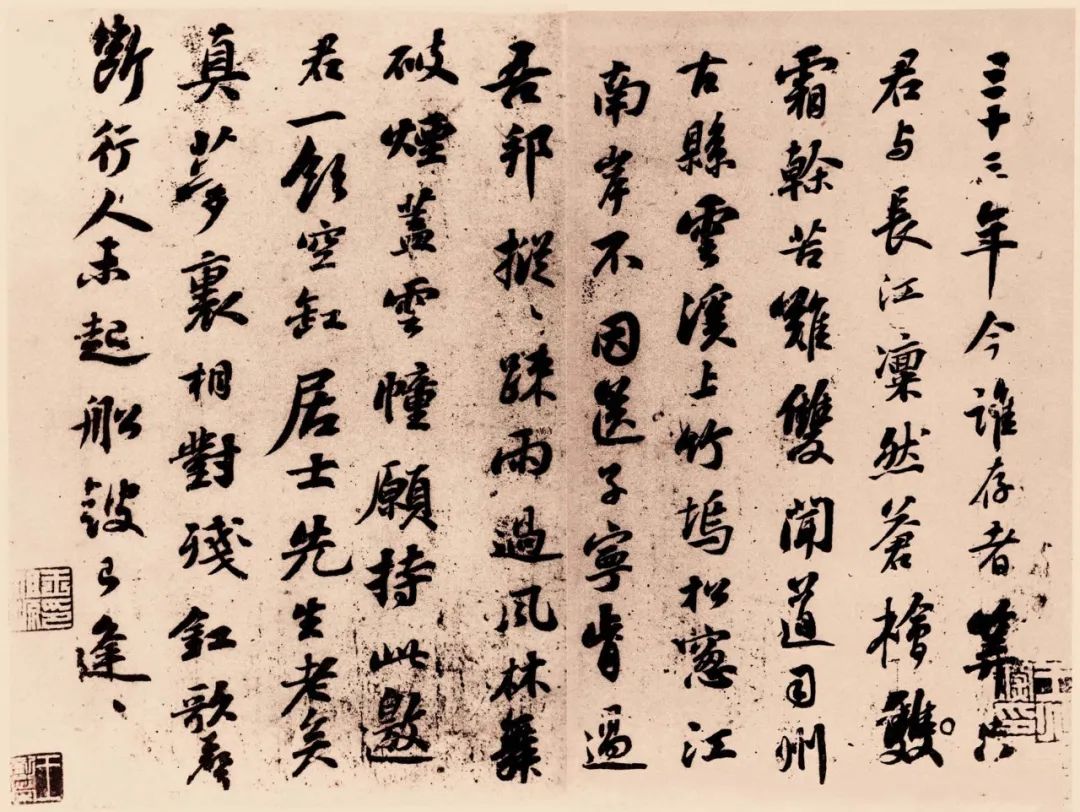 三十三年今誰存者算只
君与長江凜然蒼檜雙
霜幹苦難雙聞道司州
古縣雲溪上竹塢松窻江
南岸不因送子寧肯過
吾邦摐〻疎雨過風林舞
破煙蓋雲幢願持此邀
君一飲空缸居士先生老矣
真夢裏相對殘釭歌聲
斷行人未起船鼓已逢〻